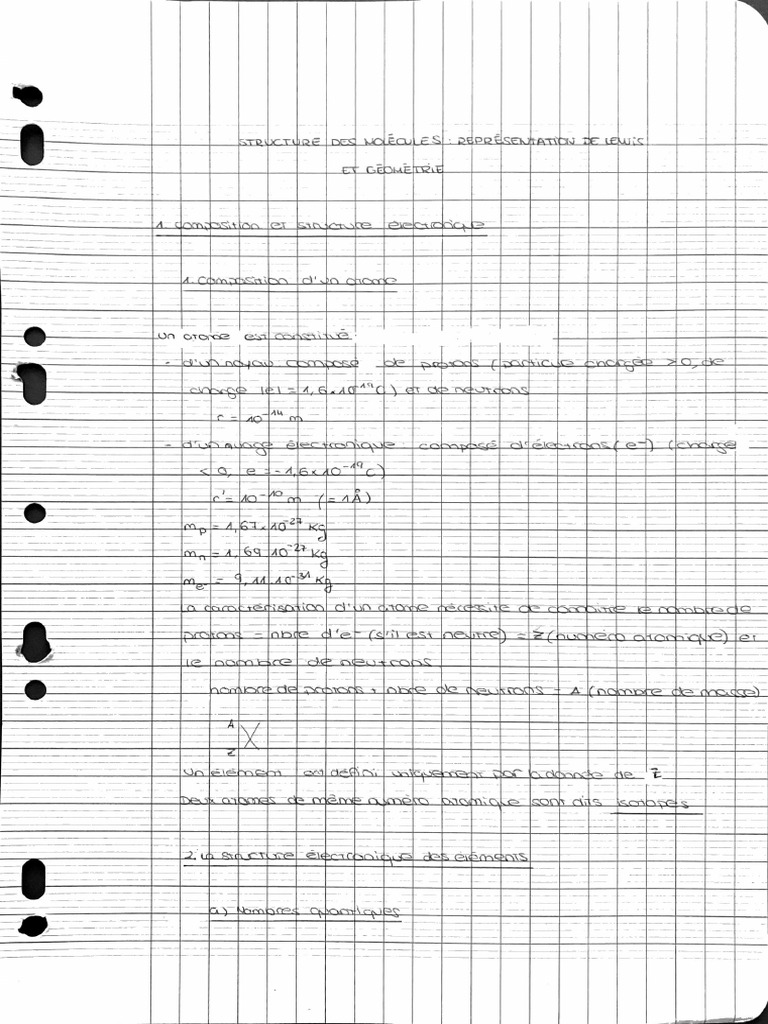 STRUCTURE DES MOLÉCULES : REPRÉSENTATION DE LEWIS
ET GÉOMÉTRIE
1. Composition et structure électronique
1. Composition d'un atome
Un atome est constitué :
- d'un noyau composé de protons (particule chargée > 0, de
charge |e| = 1,6×10⁻¹⁹C) et de neutrons
r = 10⁻¹⁴ m
- d'un nuage électronique composé d'électrons (e⁻) (charge
< 0, e = -1,6×10⁻¹⁹C)
r' = 10⁻¹⁰ m (= 1Å)
mp = 1,67×10⁻²⁷ kg
mn = 1,69 10⁻²⁷ kg
me⁻ = 9,11.10⁻³¹ kg
La caractérisation d'un atome nécessite de connaître le nombre de
protons = nbre d'e⁻ (s'il est neutre) = Z (numéro atomique) et
le nombre de neutrons
nombre de protons + nbre de neutrons = A (nombre de masse)
A
X
Z
Un élément est défini uniquement par la donnée de Z
Deux atomes de même numéro atomique sont dits isotopes
2. La structure électronique des éléments
a) Nombres quantiques